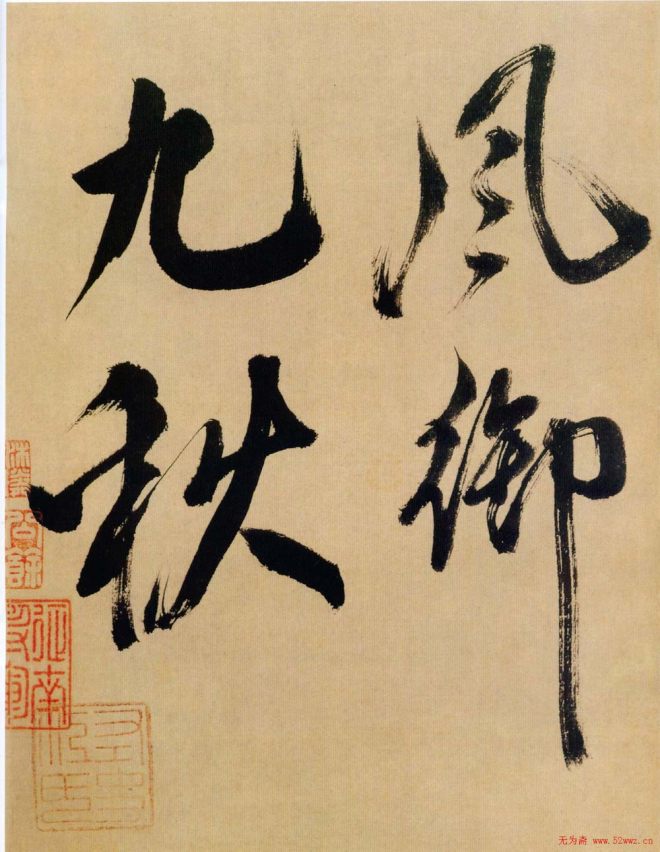 风御
九秋
无为斋 www.52wwz.cn